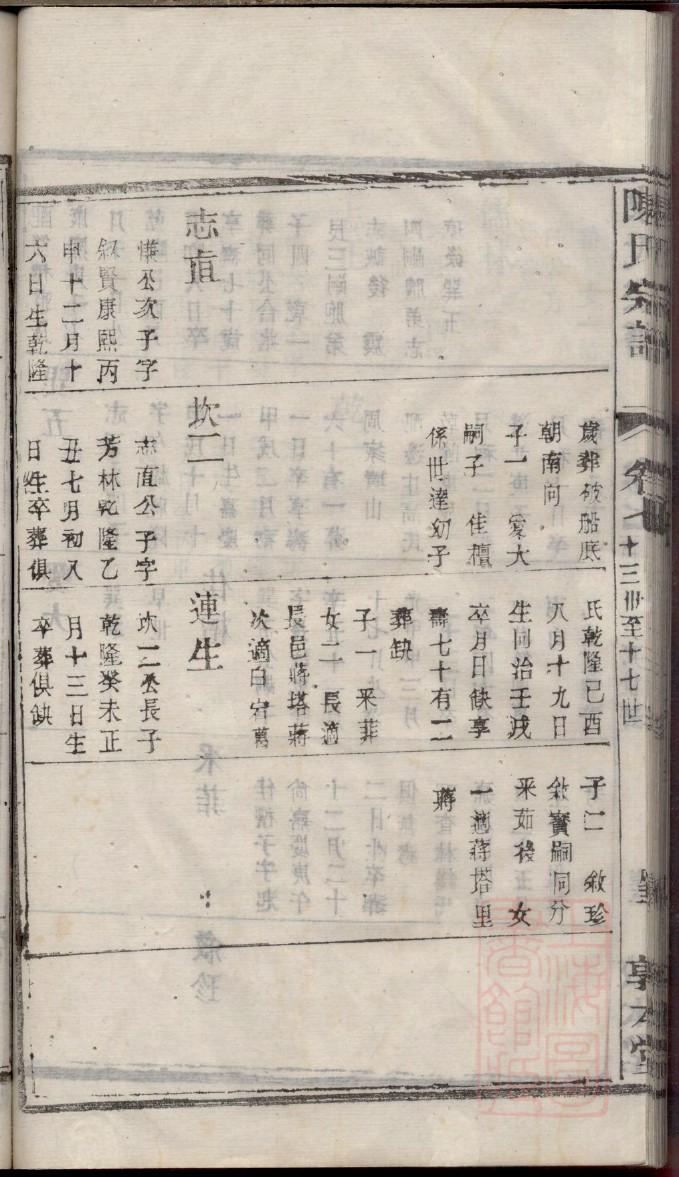 陳氏宗譜
卷七
十三世至十七世
敦本堂
歲葬破船底
朝南向
子一 愛大
嗣子 佳檀
係世達幼子
氏乾隆己酉
八月十九日
生同治壬戌
卒月日缺享
壽七十有二
葬缺
子一 釆菲
女二 長適
長邑蔣塔蔣
次適白宕萬
子二 敘珍
敘寶嗣同分
釆茹後 女
一適蔣塔里
蔣
志直
公次子字
叙賢康熙丙
申十二月十
六日生乾隆
坎二
志直公子字
芳林乾隆乙
丑七月初八
日生卒葬俱
缺
連生
坎二公長子
乾隆癸未正
月十三日生
卒葬俱缺
上海圖書館藏